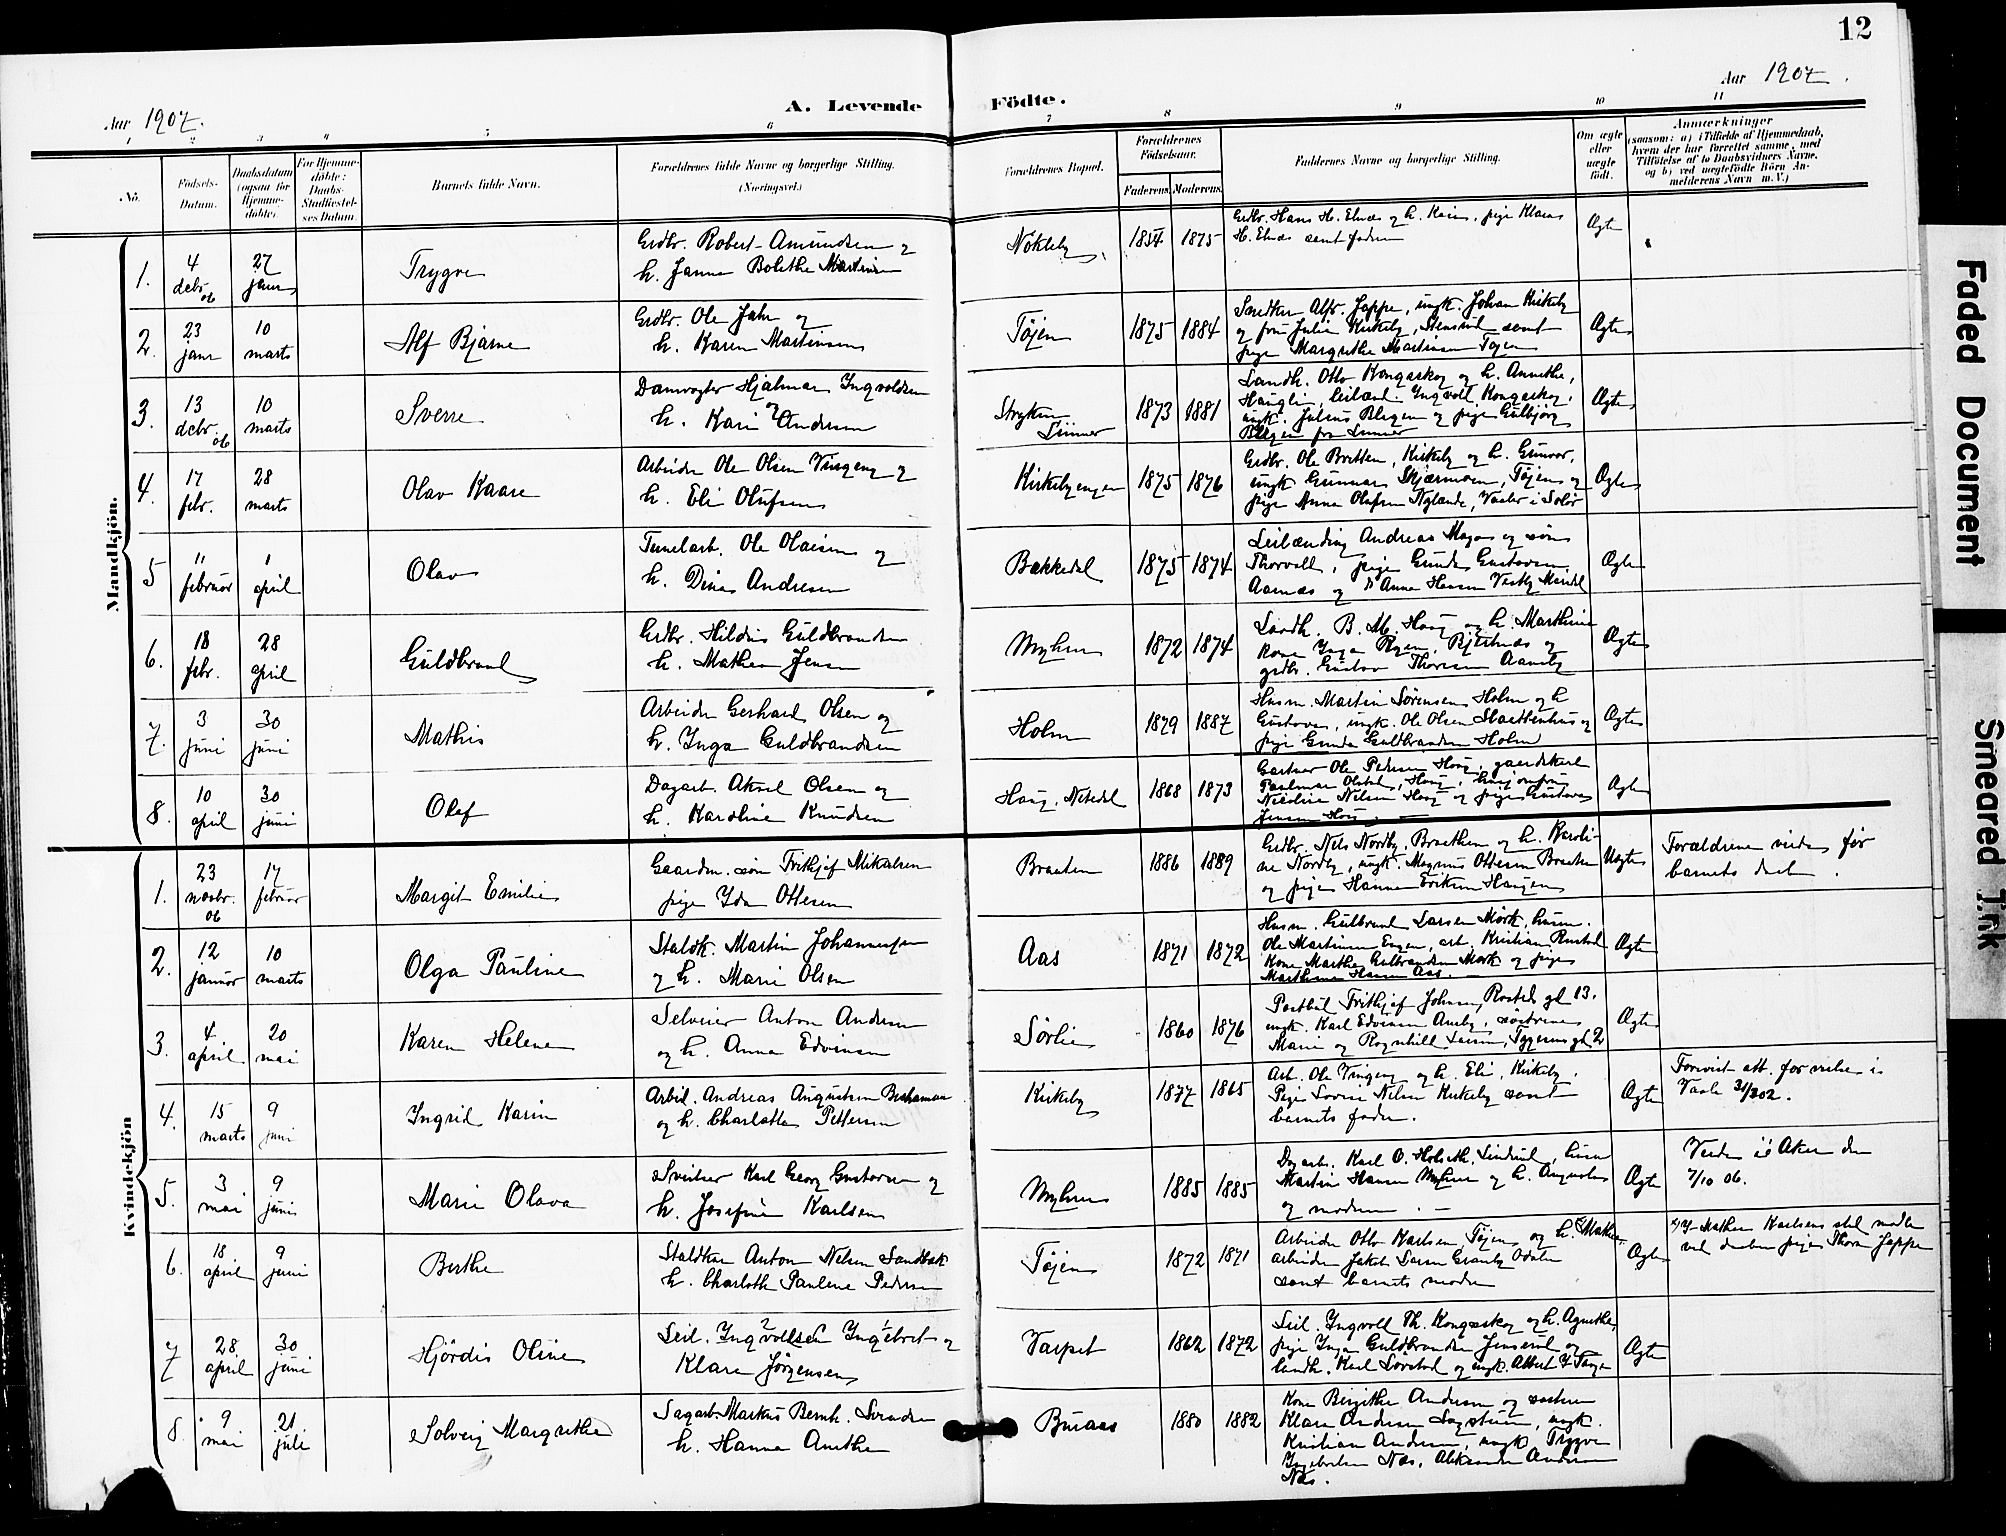 12
Aar 1907.
Aar 1907.
A. Levende Födte.
1 2 3 4 5 6 7 8 9 10 11
No.
Födsels-
Datum.
Daabsdatum
(ogsaa for
Hjemme-
döbte).
For Hjemme-
döbte:
Daabs-
Stadfæstel-
ses Datum.
Barnets fulde Navn.
Forældrenes fulde Navne og borgerlige Stilling.
(Næringsvei.)
Forældrenes Bopæl.
Forældrenes
Födselsaar.
Faderens. Moderens.
Faddernes Navne og borgerlige Stilling.
Om ægte
eller
uægte
født.
Anmærkninger
(saasom: a) i Tilfælde af Hjemmedaab,
hvem der har forrettet samme, med
Tilföielse af to Daabsvidners Navne,
og b) ved uægtefödte Börn An-
melderens Navn m. V.)
Mandkjön.
1. 4 debr. 06 27 janr Trygve
Grdbr. Robert Amundsen og
h. Janna Bolethe Martinsen
Nökleby. 1854 1875
Grdbr. Hans H. Elnæs og h. Karen, pige Klara
H. Elnæs samt faderen
Ægte
2. 23 janr 10 marts Alf Bjarne
Grdbr. Ole Jahr og
h. Karen Martinsen
Töjen 1875 1884
Alfr. Jeppe, ungk. Johan Kirkeby
og fru Julie Kirkeby, Stensrud samt
pige Margrethe Martinsen Töjen
Ægte
3. 13 debr. 06 10 marts Sverre
Damvogter Hjalmar Ingvoldsen
og
h. Kari Andersen
Stryken
Lunner 1873 1881
Landh. Otto Kongsskog og h. Annethe,
Haugli, leilænd. Ingvoll Kongsskog,
ungk. Julius Bergen og pige Gulbjörg
Bergen fra Lunner
Ægte
4. 17 febr. 28 marts Olav Kaare
Arbeider Ole Olsen Vingeng og
h. Eli Olufsen
Kirkebyengen 1875 1876
Grdbr. Ole Bratten, Kirkeby og h. Gunvor,
ungk Gunnar Skjærmoen, Töjen og
pige Anna Olufsen Nylande, Vaaler i Solör
Ægte
5 11 februar 1 april Olav
Tunelarb. Ole Olaisen og
h. Dina Andresen
Bakkedal 1875 1874
Leilænding Andreas Moger og sön
Thorvall, pige Gunda Gustavsen
Aasnæs og Anna Hansen
Ægte
6. 18 febr. 28 april Guldbrand
Grdbr. Hildus Guldbrandsen
h. Mathea Jensen
Myhren 1872 1874
Landh. B. M. Haug og h. Marthine
Kone Inga Rgen, Bjertnæs og
grdbr. Gustav Thoresen Aaneby
Ægte
7. 3 juni 30 juni Mathis
Arbeider Gerhard Olsen og
h. Inga Guldbrandsen
Holm 1879 1887
Husm. Martin Sörensen Holm og h
Gustava, ungk. Ole Olsen Slaattenhus og
pige Gunda Guldbrandsen Holm
Ægte
8. 10 april 30 juni Olaf
Dagarb. Aksel Olsen og
h. Karoline Knudsen
Haug, Nitedal 1868 1873
Gartner Ole Pedersen Haug, gaardskarl
Haug,
Nicoline Nilsen Haug og pige Gustava
Jensen Haug
Ægte
Kvindekjön
1. 23 novbr. 06 17 februar Margit Emilie
Gaardm. sön Frithjof Mikalsen
pige Ida Ottesen
Braaten 1886 1889
Grdbr. Nils Nordby, Braathen og h. Karoli-
ne Nordby, ungk. Magnus Ottesen Braaten
og pige Hanna Eriksen Haugen
Uægte
Forældrene viede før
barnets daab.
2. 12 januar 10 marts Olga Pauline
Staldk. Martin Johannessen
og h. Marie Olsen
Aas 1871 1872
Husm. Gulbrand Larsen Mörk, husm.
Ole Martinsen Engen, arb. Kristian Rustad
Kone Marthea Gulbrandsen Mörk og pige
Marthinus Hansen Aas.
Ægte
3. 4 april 20 mai Karen Helene
Selveier Anton Andersen
og h. Anna Edvinsen
Sörlie 1860 1876
Postbud Frithjof Johnsen, Rosteds gd 13.
ungk. Karl Edvinsen Aneby, söstrene
Marie og Ragnhild Larsen,
Ægte
4. 15 marts 9 juni Ingrid Karin
Arbeid. Andreas Augustsen
og h. Charlotta Pettersen
Kirkeby 1877 1865
Arb. Ole Vingeng og h. Eli, Kirkeby.
Pige Lovise Nilsen Kirkeby samt
barnets fader.
Ægte
Forevist att. for vielse i
Vaale 31/3 02.
5. 3 mai 9 juni Marie Olava
Sveitser Karl Georg Gustavsen og
h. Josefine Karlsen
Myhren 1885 1885
Dagarb. Karl O. Holseth, husm
Martin Hansen Myhren og h. Augusta
og moderen.
Ægte
Viede i Aker den
7/10 06.
6. 18 april 9 juni Berthe
Staldkar Anton Nilsen Sandbæk
h. Charlotte Pauline Pedersen
Töjen 1872 1871
Arbeider Otto Karlsen Töjen og h. Mathea,
arbeider Jakob Larsen Granby Odalen
samt barnets moder
Ægte
Mathea Karlsens sted mödte
ved daaben pigen Thora Jeppe
7 28 april 30 juni Hjördis Oline
Leil. Ingvollsen Ingebret og
Klara Jörgensen
Varpet 1862 1872
Leil. Ingvoll Th. Kongsskog og h. Agnethe,
pige Inga Guldbrandsen og
landh. Karl Lövstad og ungk. Albert
Ægte
8. 9 mai 21 juli Solveig Margrethe
Sagarb. Markus Bernh. Svendsen
h. Hanna Anethe
Buraas 1880 1882
Kone Birgithe Andersen og söstrene
Klara Andersen Sagstuen, ungk.
Kristian Andersen, ungk. Trygve
Ingebretsen Næs, Aleksander Andersen
Næs.
Faded Document
Smeared Ink